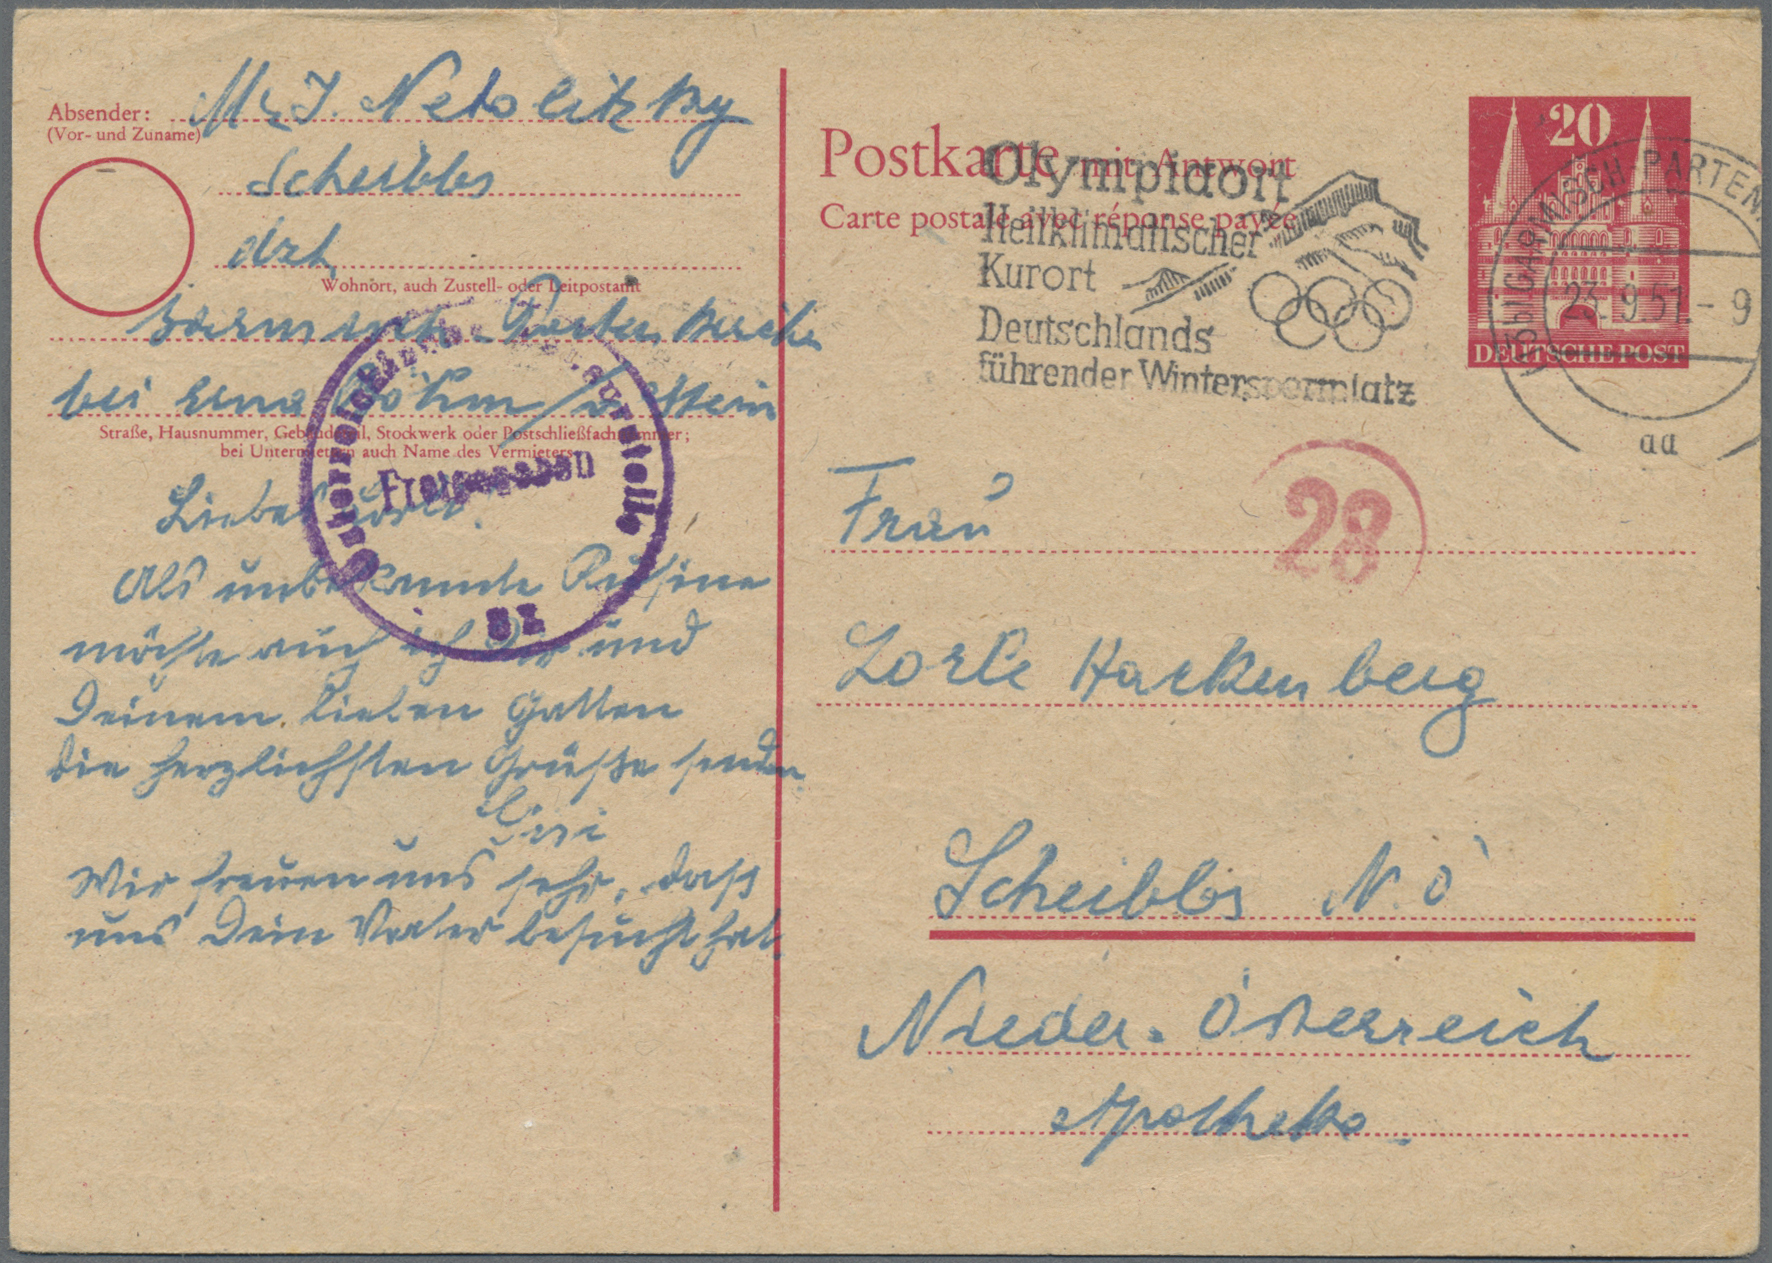 Absender:
(Vor- und Zuname)
J. Netolitzky
Scheibbs
dzt.
Wohnort, auch Zustell- oder Leitpostamt
Garmisch-Partenkirchen
bei Erna Böhm
Straße, Hausnummer, Gebäudeteil, Stockwerk oder Postschließfachnummer;
bei Untermietern auch Name des Vermieters
Österreichische Zensurstelle
Freigegeben
Als unbekannte Kusine
möchte auch ich Dir und
Deinem lieben Gatten
die herzlichsten Grüße senden
Wir freuen uns sehr, dass
uns Dein Vater besucht hat.
Postkarte mit Antwort
Carte postale avec réponse payée
Olympidort
Heilklimatischer
Kurort
Deutschlands
führender Wintersportplatz
20
DEUTSCHE POST
GARMISCH-PARTEN
23.9.51.-9
aa
28
Frau
Lorle Hackenberg
Scheibbs N.Ö
Nieder-Österreich
Apotheke